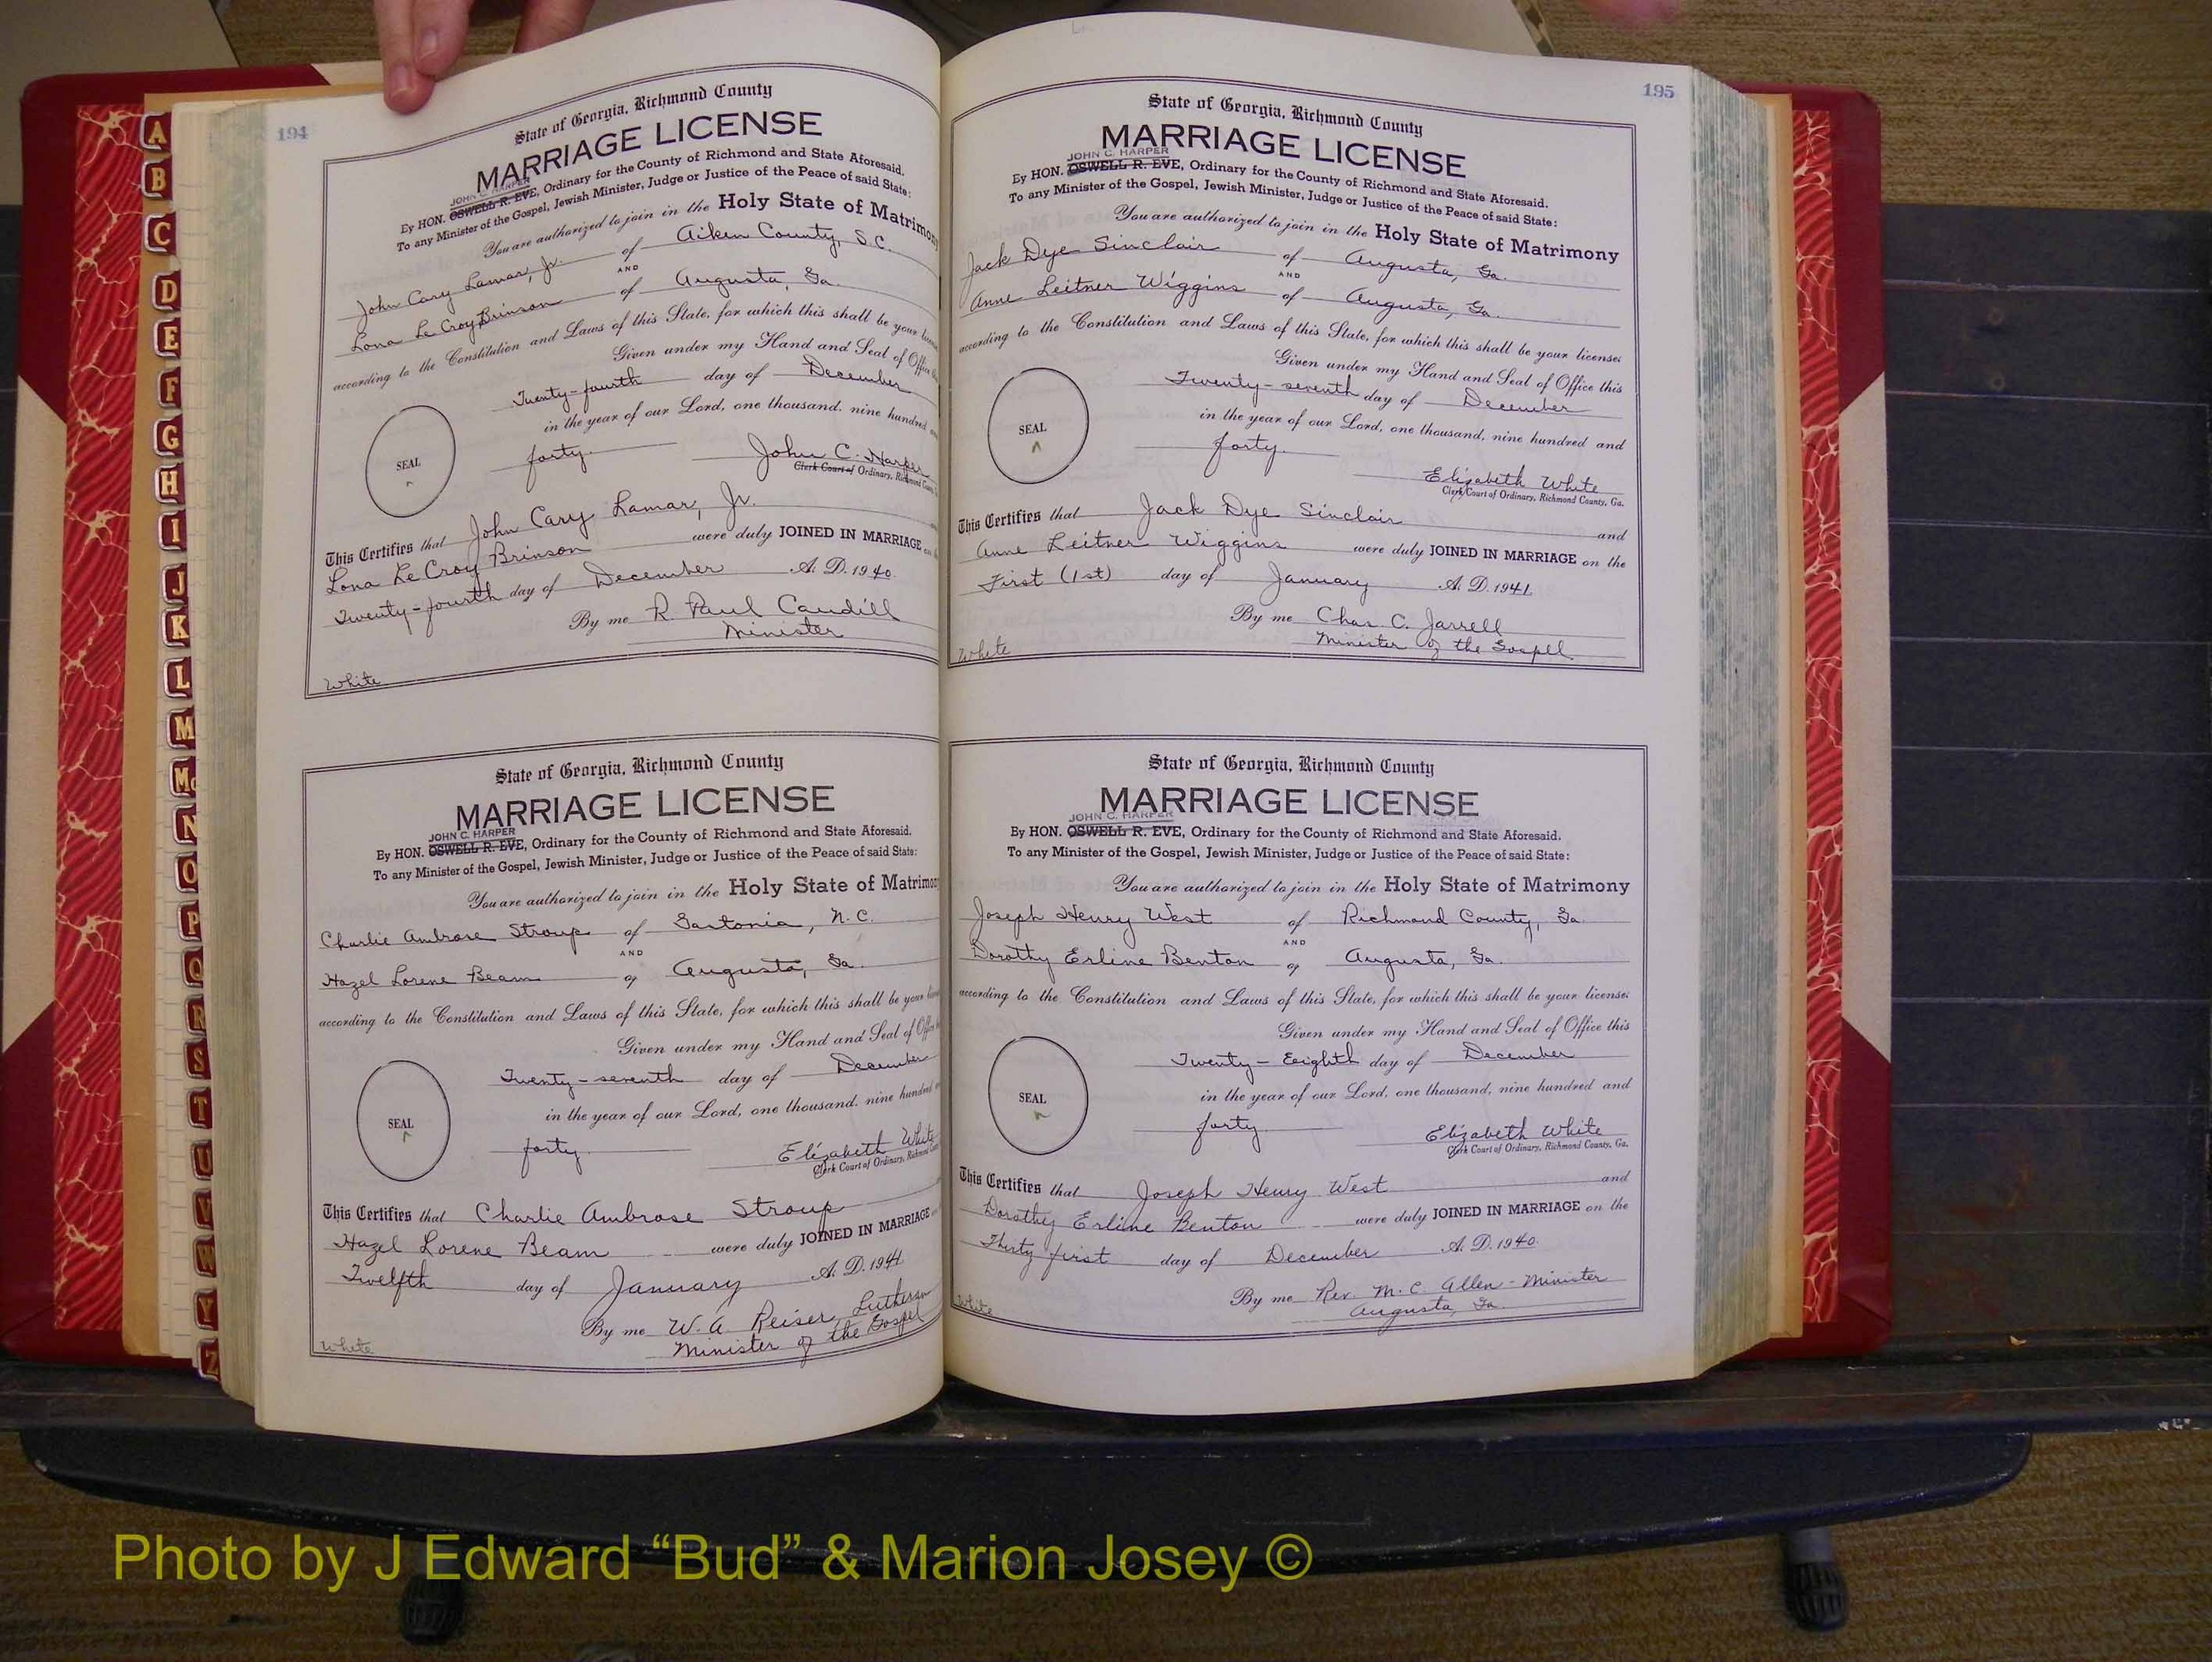 194
State of Georgia, Richmond County
MARRIAGE LICENSE
JOHN C. HARPER
By HON. OSWELL R. EVE, Ordinary for the County of Richmond and State Aforesaid.
To any Minister of the Gospel, Jewish Minister, Judge or Justice of the Peace of said State:
You are authorized to join in the Holy State of Matrimony
John Cary Lamar, Jr. of Aiken County, S.C.
AND
Lona Le Croy Brinson of Augusta, Ga.
according to the Constitution and Laws of this State, for which this shall be your
Given under my Hand and Seal of Office
Twenty-fourth day of December
in the year of our Lord, one thousand, nine hundred
SEAL
forty. John C. Harper
Clerk Court of Ordinary, Richmond
This Certifies that John Cary Lamar, Jr.
Lona Le Croy Brinson were duly JOINED IN MARRIAGE
Twenty-fourth day of December A. D. 1940
By me R. Paul Caudill
Minister
White
State of Georgia, Richmond County
MARRIAGE LICENSE
JOHN C. HARPER
By HON. OSWELL R. EVE, Ordinary for the County of Richmond and State Aforesaid.
To any Minister of the Gospel, Jewish Minister, Judge or Justice of the Peace of said State:
You are authorized to join in the Holy State of Matrimony
Charlie Ambrose Stroup of Gastonia, N.C.
AND
Hazel Lorene Beam of Augusta, Ga.
according to the Constitution and Laws of this State, for which this shall be your
Given under my Hand and Seal of Office
Twenty-seventh day of December
in the year of our Lord, one thousand, nine hundred
SEAL
forty. Elizabeth White
Clerk Court of Ordinary, Richmond
This Certifies that Charlie Ambrose Stroup
Hazel Lorene Beam were duly JOINED IN MARRIAGE
Twelfth day of January A. D. 1941
By me W. A. Reiser, Lutheran
Minister of the Gospel
White
195
State of Georgia, Richmond County
MARRIAGE LICENSE
JOHN C. HARPER
By HON. OSWELL R. EVE, Ordinary for the County of Richmond and State Aforesaid.
To any Minister of the Gospel, Jewish Minister, Judge or Justice of the Peace of said State:
You are authorized to join in the Holy State of Matrimony
Jack Dye Sinclair of Augusta, Ga.
AND
Anne Leitner Wiggins of Augusta, Ga.
according to the Constitution and Laws of this State, for which this shall be your license:
Given under my Hand and Seal of Office this
Twenty-seventh day of December
in the year of our Lord, one thousand, nine hundred and
SEAL
forty. Elizabeth White
Clerk Court of Ordinary, Richmond County, Ga.
This Certifies that Jack Dye Sinclair and
Anne Leitner Wiggins were duly JOINED IN MARRIAGE on the
First (1st) day of January A. D. 1941
By me Chas. C. Jarrell
Minister of the Gospell
White
State of Georgia, Richmond County
MARRIAGE LICENSE
JOHN C. HARPER
By HON. OSWELL R. EVE, Ordinary for the County of Richmond and State Aforesaid.
To any Minister of the Gospel, Jewish Minister, Judge or Justice of the Peace of said State:
You are authorized to join in the Holy State of Matrimony
Joseph Henry West of Richmond County, Ga.
AND
Dorothy Erline Benton of Augusta, Ga.
according to the Constitution and Laws of this State, for which this shall be your license:
Given under my Hand and Seal of Office this
Twenty-Eeighth day of December
in the year of our Lord, one thousand, nine hundred and
SEAL
forty. Elizabeth White
Clerk Court of Ordinary, Richmond County, Ga.
This Certifies that Joseph Henry West and
Dorothy Erline Benton were duly JOINED IN MARRIAGE on the
Thirty first day of December A. D. 1940
By me Rev. M. C. Allen - Minister
Augusta, Ga.
White
A
B
C
D
E
F
G
H
I
J
K
L
M
Mc
N
O
P
Q
R
S
T
U
V
W
Y
Z
Photo by J Edward “Bud” & Marion Josey ©